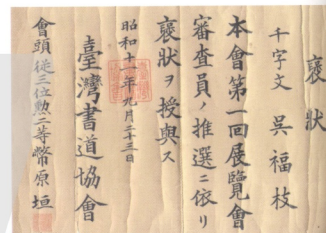 褒狀
千字文 呉福枝
本會第一回展覽會
審査員ノ推選ニ依リ
褒狀ヲ授與ス
昭和十一年九月二十三日
臺灣書道協會
會頭從三位勲二等幣原垣